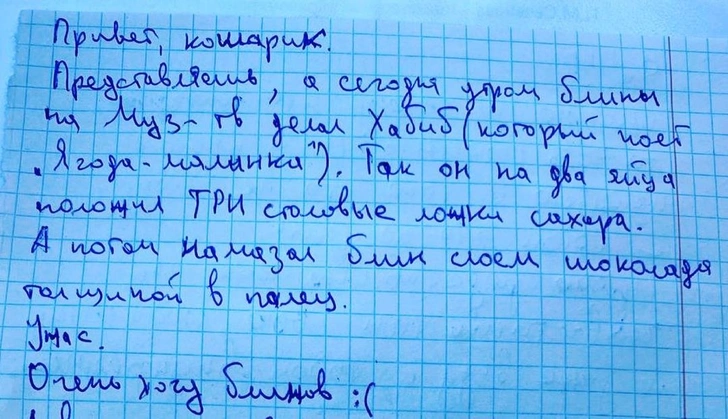 Привет, кошарик.
Представляешь, а сегодня утром блины
на Муз-тв делал Хабиб (который поёт
"Ягода-малинка"). Так он на два яйца
положил ТРИ столовые ложки сахара.
А потом намазал блин слоем шоколада
толщиной в палец.
Ужас.
Очень хочу блинов :(